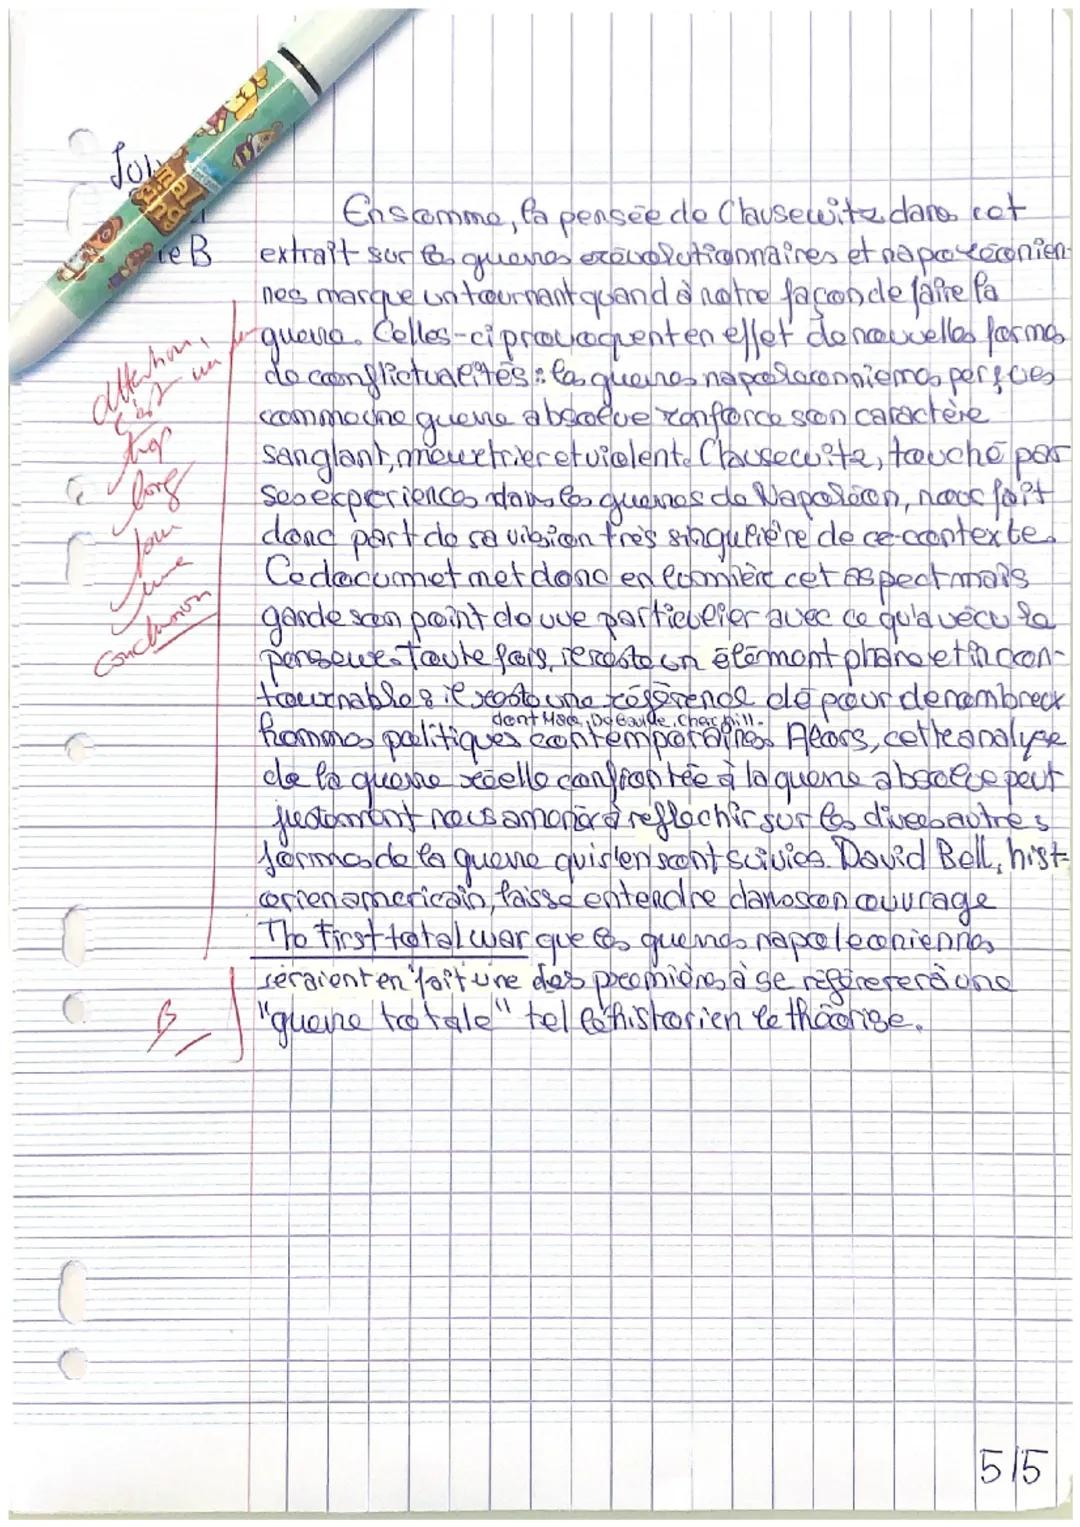 ie B
En somme, la pensée de Clausewitz dans cet
extrait sur les guerres révolutionnaires et napoléonien-
nes marque un tournant quand à notre façon de faire la
guerre. Celles-ci provoquent en effet de nouvelles formes
de conflictualités : les guerres napoléonniennes perçues
comme une guerre absolue renforce son caractère
sanglant, meurtrier et violent. Clausewitz, touché par
ses expériences dans les guerres de Napoléon, nous fait
donc part de sa vision très singulière de ce contexte.
Ce documet met donc en lumière cet aspect mais
garde son point de vue particulier avec ce qu'a vécu le
penseur. Toute fois, il reste un élément phare et incon-
tournable : il reste une référence clé pour de nombreux
dont Mao, De Gaulle, Churchill.
hommes politiques contemporains. Alors, cette analyse
de la guerre réelle confrontée à la guerre absolue peut
justement nous amener à reflechir sur les diverses autres
formes de la guerre qui s'en sont suivies. David Bell, hist-
orien americain, laisse entendre dans son ouvrage
The First total war que les guerres napoleoniennes
seraient en fait une des premières à se référerer à une
"guerre totale" tel l'historien le théorise.
attention,
c'est un peu
trop
long
pour
une
conclusion
B
5/5